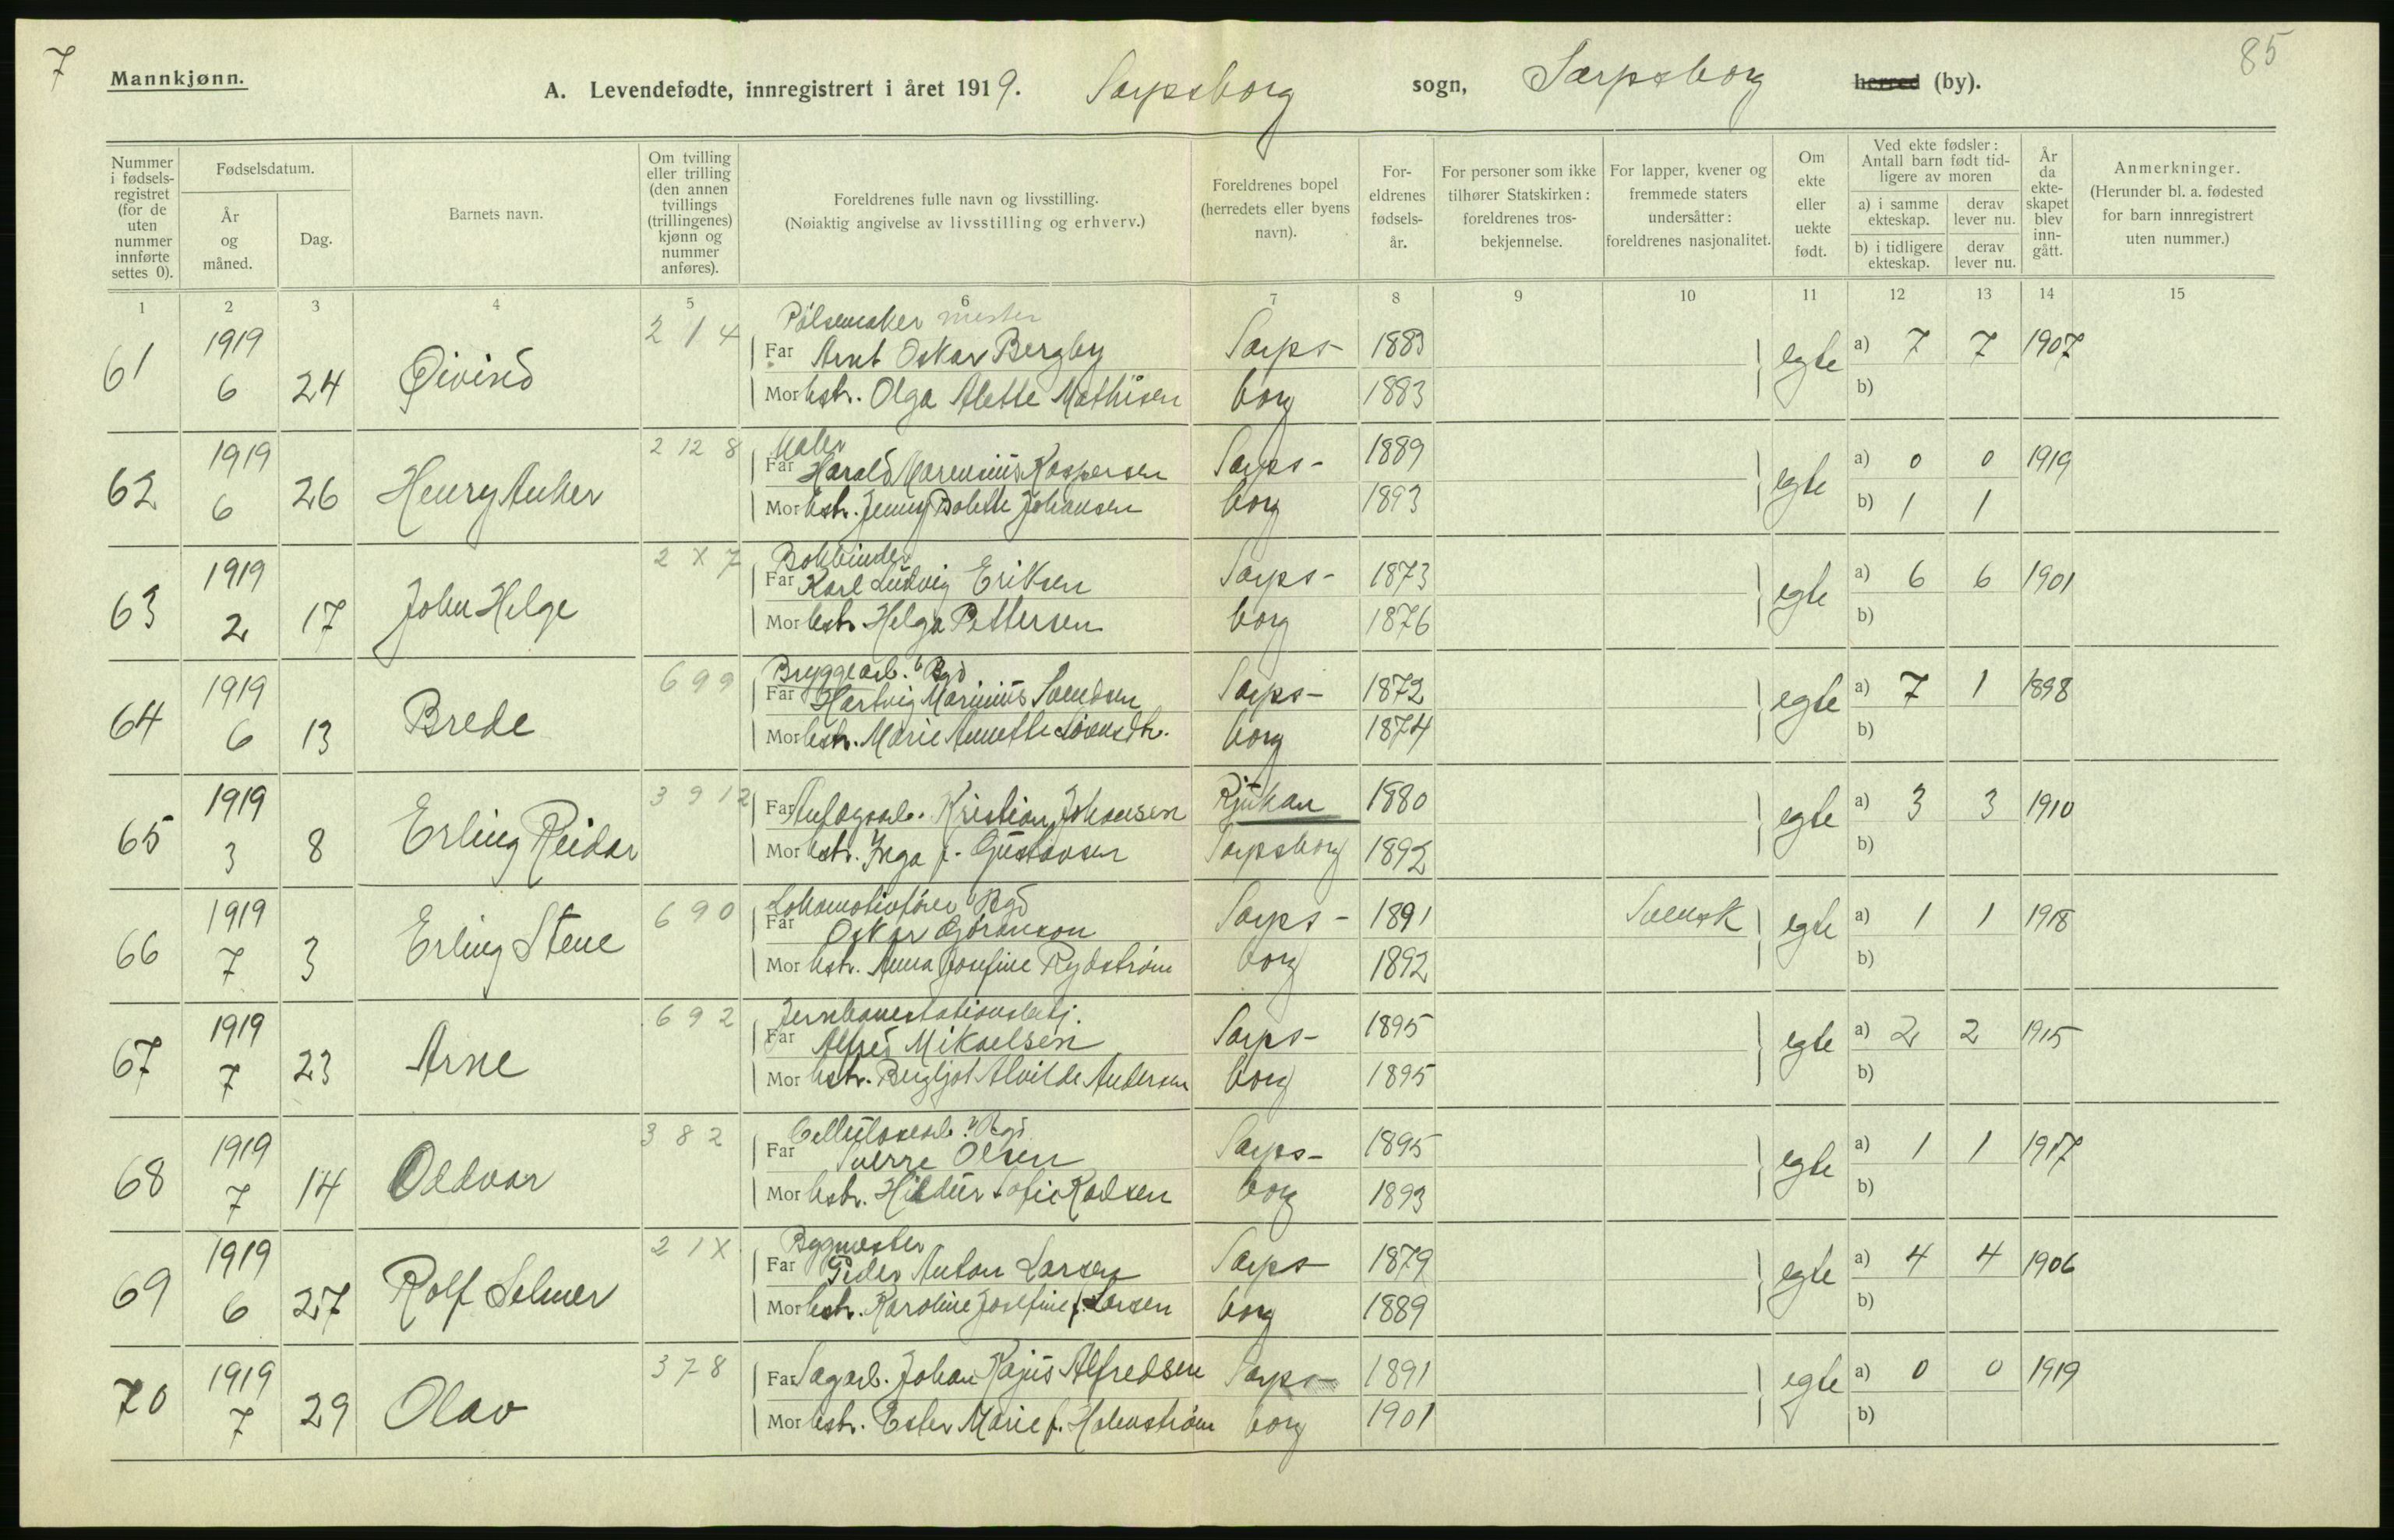 7
Mannkjønn.
A. Levendefødte, innregistrert i året 1919. Sarpsborg sogn, Sarpsborg herred (by).
85
Nummer i fødselsregistret (for de uten nummer innførte settes 0).
Fødselsdatum.
År og måned.
Dag.
Barnets navn.
Om tvilling eller trilling (den annen tvillings (trillingenes) kjønn og nummer anføres).
Foreldrenes fulle navn og livsstilling.
(Nøiaktig angivelse av livsstilling og erhverv.)
Foreldrenes bopel (herredets eller byens navn).
Foreldrenes fødselsår.
For personer som ikke tilhører Statskirken: foreldrenes trosbekjennelse.
For lapper, kvener og fremmede staters undersåtter: foreldrenes nasjonalitet.
Om ekte eller uekte født.
Ved ekte fødsler: Antall barn født tidligere av moren
a) i samme ekteskap. derav lever nu.
b) i tidligere ekteskap. derav lever nu.
År da ekteskapet blev inngått.
Anmerkninger.
(Herunder bl. a. fødested for barn innregistrert uten nummer.)
1 2 3 4 5 6 7 8 9 10 11 12 13 14 15
2 1 4 Pølsemaker mester
61 1919 Øivind Far Arnt Oskar Bergby Sarps- 1883 egte a) 7 7 1907
6 24 Mor hstr. Olga Alette Mathisen borg 1883 b)
2 12 8 Maler
62 1919 Henry Anker Far Harald Marensius Kaspersen Sarps- 1889 egte a) 0 0 1919
6 26 Mor hstr. Jenny Bolette Johansen borg 1893 b) 1 1
2 X 7 Bokbinder
63 1919 John Helge Far Karl Ludvig Eriksen Sarps- 1873 egte a) 6 6 1901
2 17 Mor hstr. Helga Pettersen borg 1876 b)
6 9 9 Bryggearb.
64 1919 Brede Far Hartvig Marinius Svendsen Sarps- 1872 egte a) 7 1 1898
6 13 Mor hstr. Marie Annette borg 1874 b)
3 9 12
65 1919 Erling Reidar Far Kristian Johansen Rjukan 1880 egte a) 3 3 1910
3 8 Mor hstr. Inga f. Gustavsen Sarpsborg 1892 b)
6 9 0 Lokomotivfører
66 1919 Erling Stene Far Oskar Göranson Sarps- 1891 Svensk egte a) 1 1 1918
7 3 Mor hstr. Anna Josefine Rydstrøm borg 1892 b)
6 9 2 Jernbanestationsbetj.
67 1919 Arne Far Alfred Mikaelsen Sarps- 1895 egte a) 2 2 1915
7 23 Mor hstr. Bergljot Alvilde Andersen borg 1895 b)
3 8 2 Cellulosearb.
68 1919 Oddvar Far Sverre Olsen Sarps- 1895 egte a) 1 1 1917
7 14 Mor hstr. Hildur Sofie Karlsen borg 1893 b)
2 1 X Bygmester
69 1919 Rolf Selmer Far Peder Anton Larsen Sarps 1879 egte a) 4 4 1906
6 27 Mor hstr. Karoline Josefine f. Larsen borg 1889 b)
3 7 8
70 1919 Olav Far Sagarb. Johan Kajus Alfredsen Sarps- 1891 egte a) 0 0 1919
7 29 Mor hstr. Ester Marie f. Holmstrøm borg 1901 b)